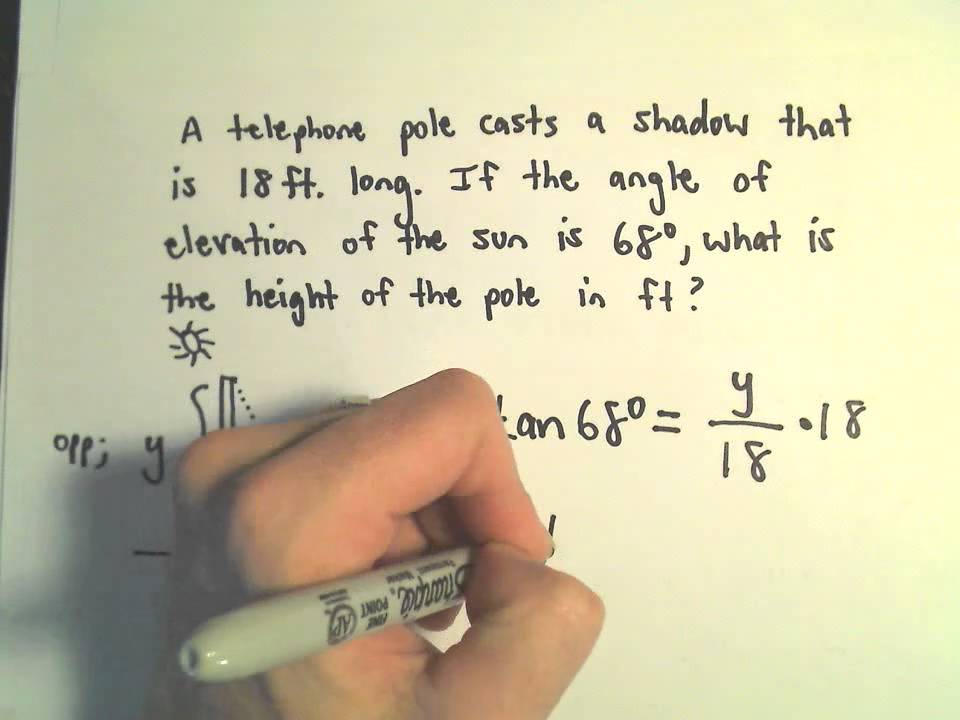 A telephone pole casts a shadow that
is 18 ft. long. If the angle of
elevation of the sun is 68°, what is
the height of the pole in ft?
tan 68° = y/18 • 18
opp; y
Sharpie
FINE POINT
AP